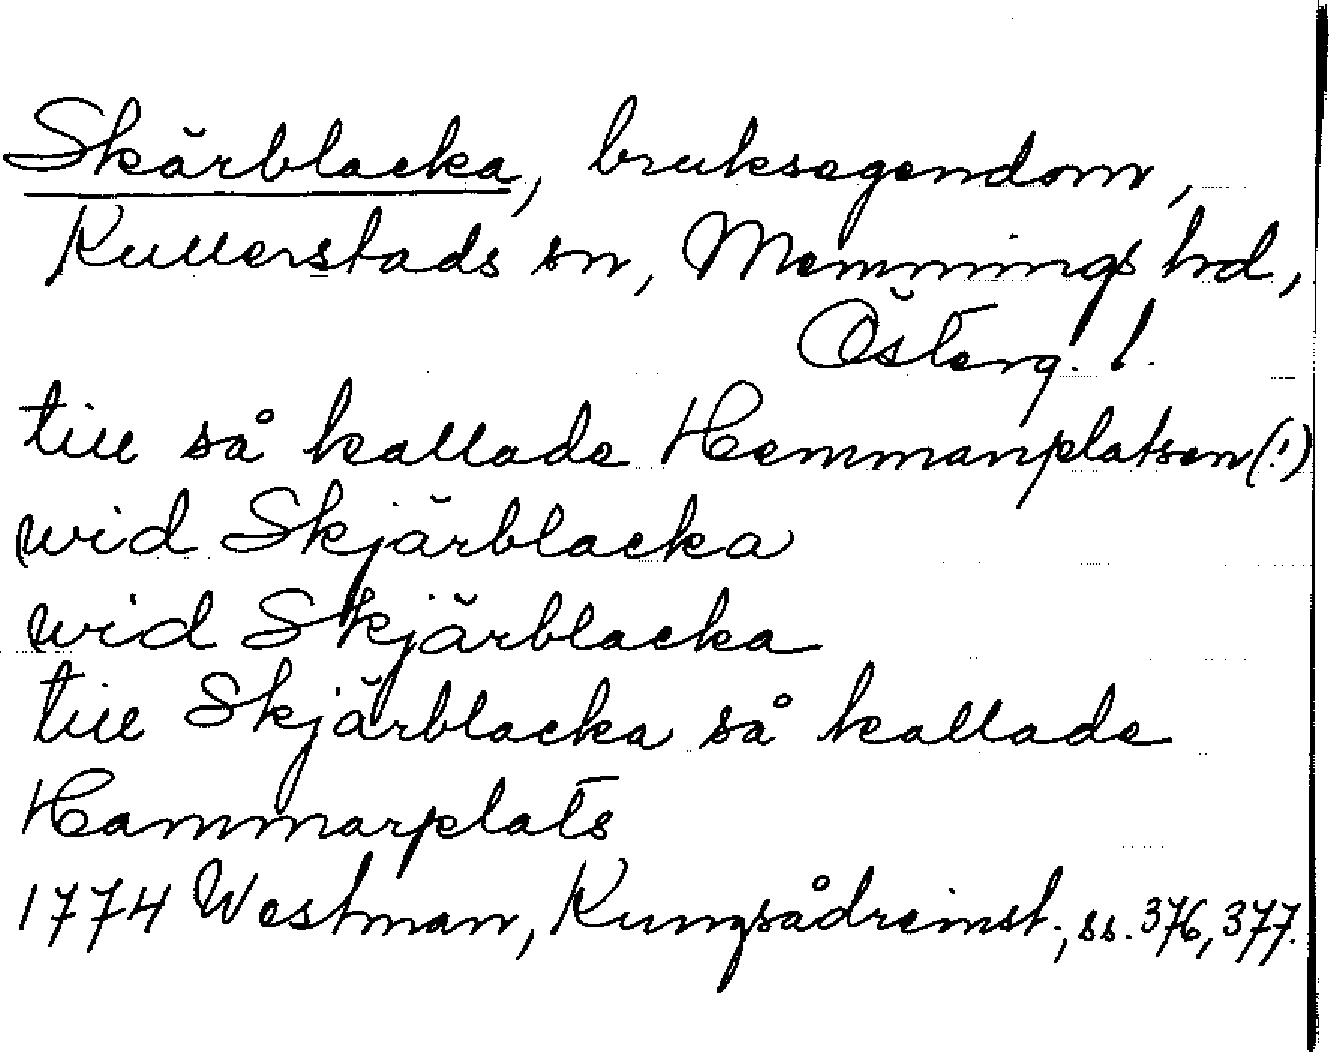 Skärblacka, bruksegendom,
Kullerstads sn, Memmings hd,
Österg. l.
till så kallade Hemmanplatsen (!)
wid Skjärblacka
wid Skjärblacka
till Skjärblacka så kallade
Hammarplats
1774 Westman, Kungsådreinst., ss. 376, 377.